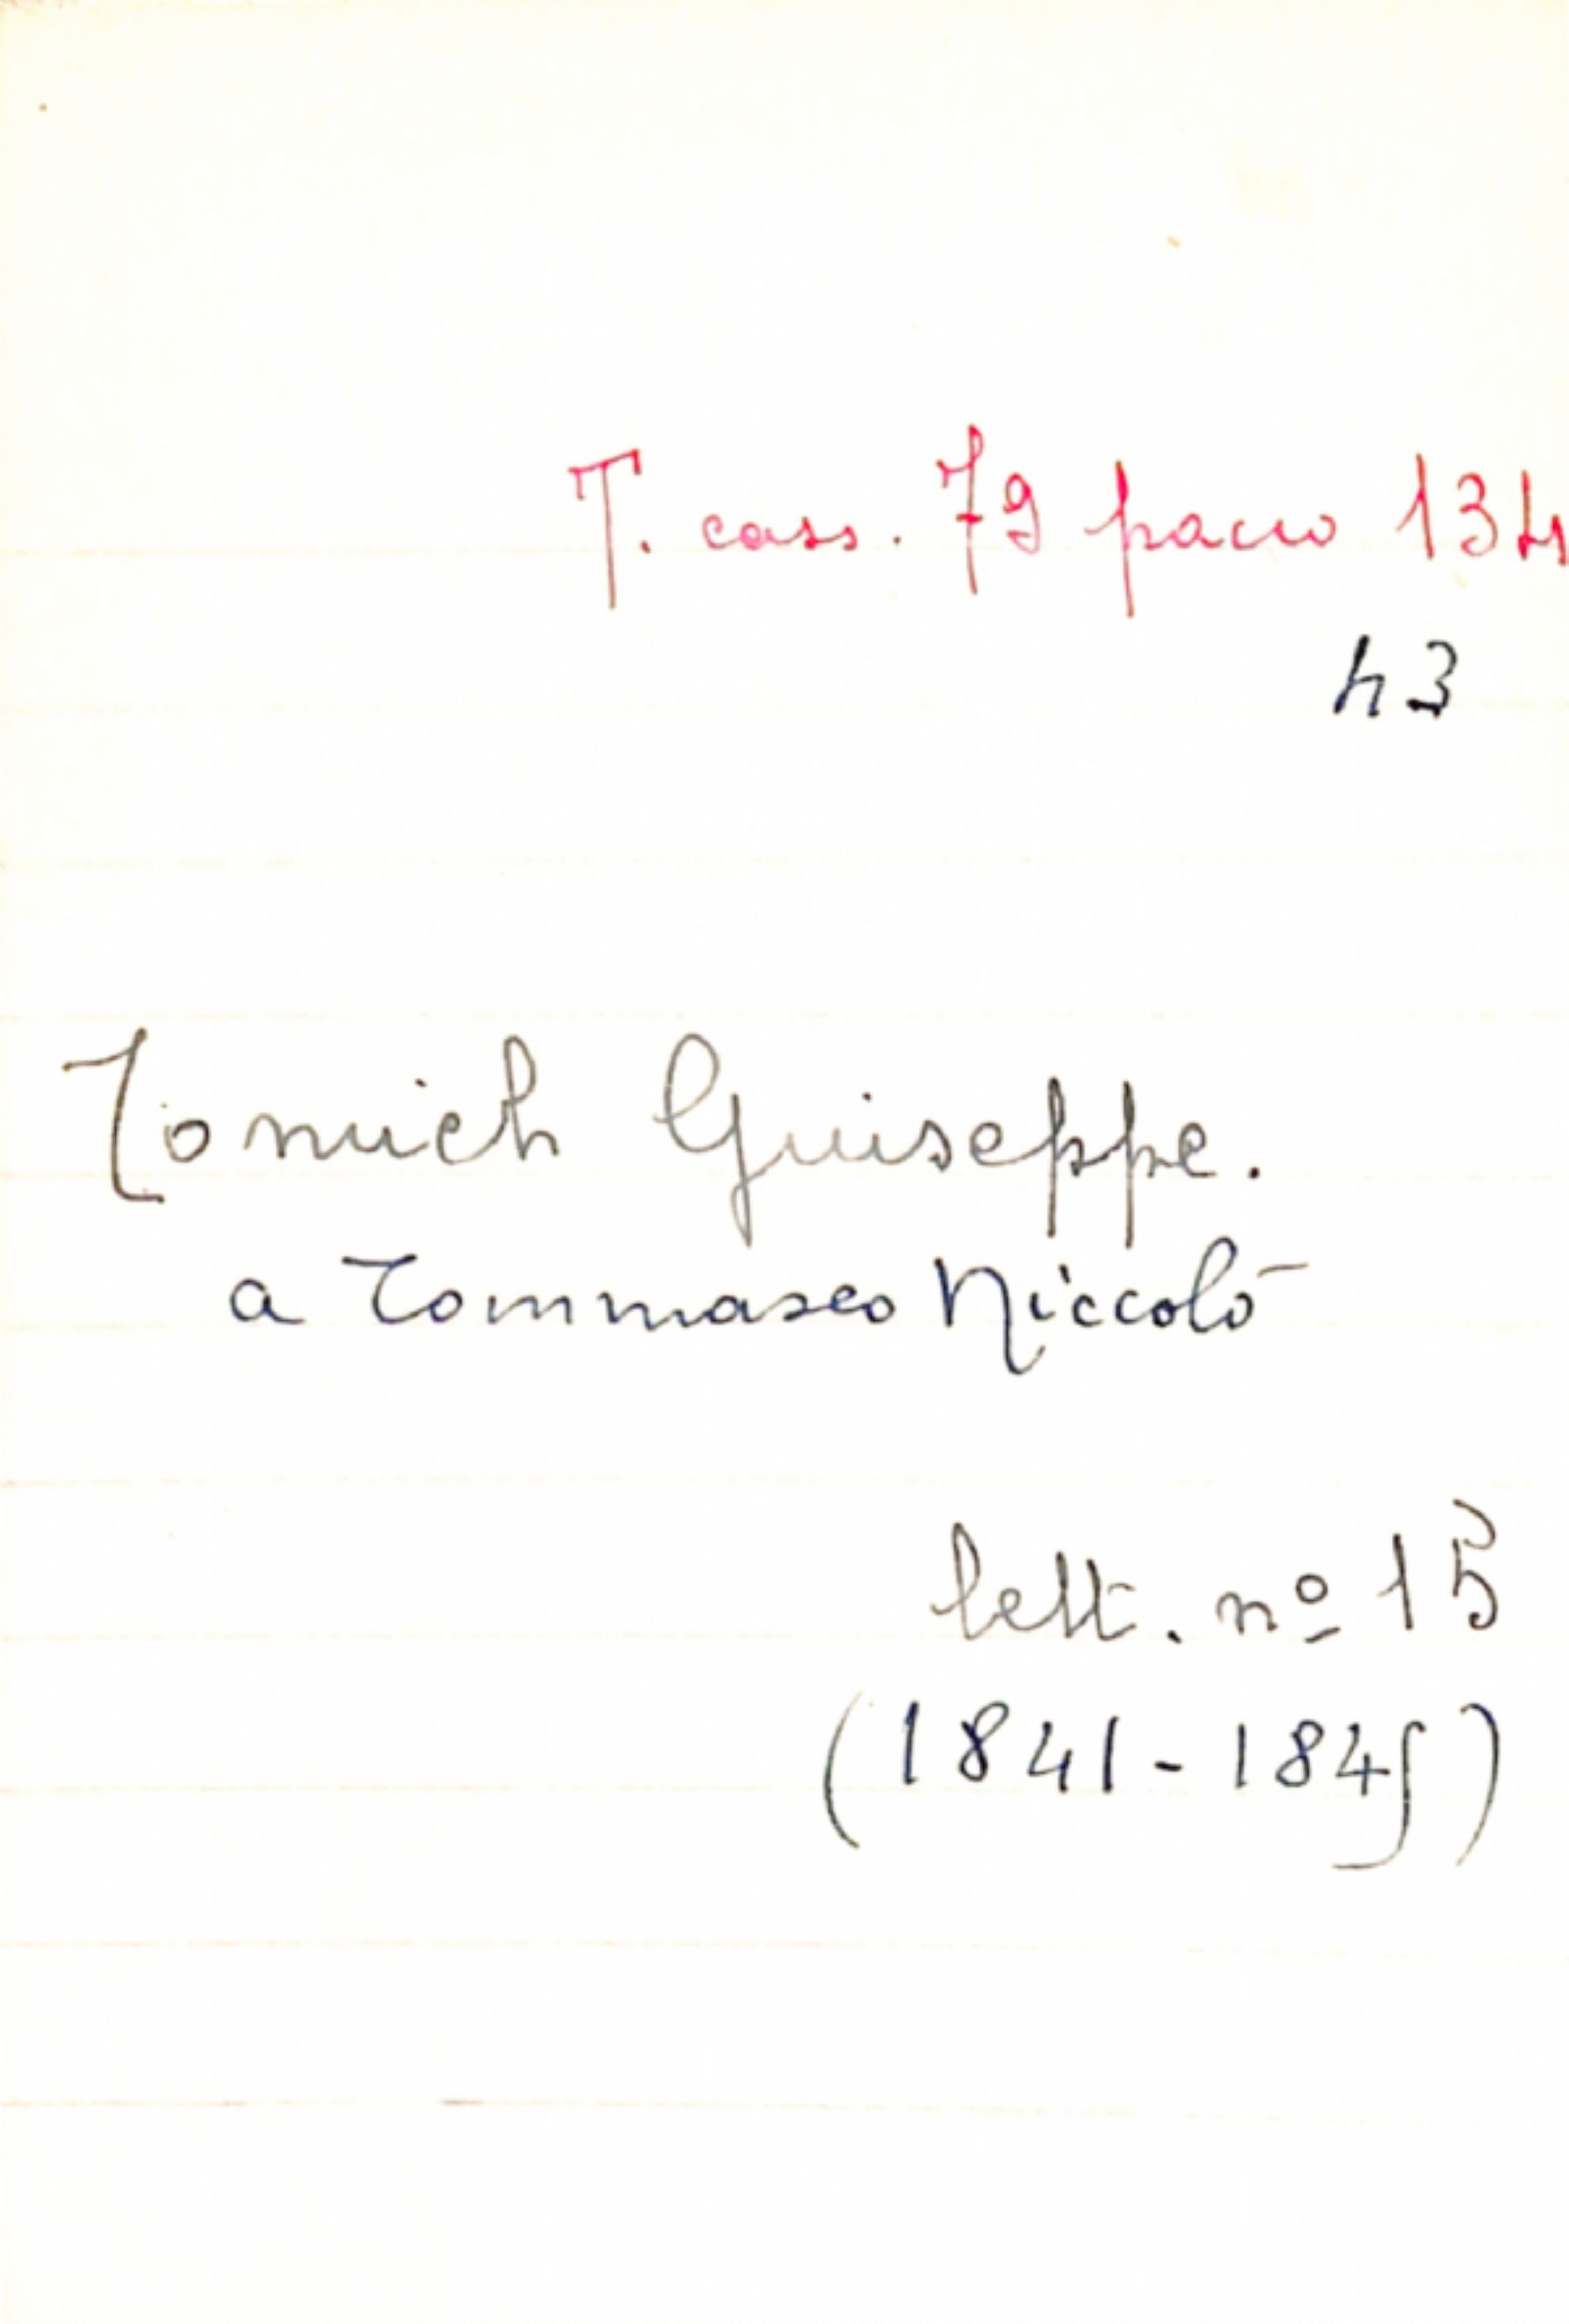 T. cass. 79 pacco 134
h 3
Tomich Giuseppe.
a Tommaseo Niccolò
lett. nº 15
(1841-1845)